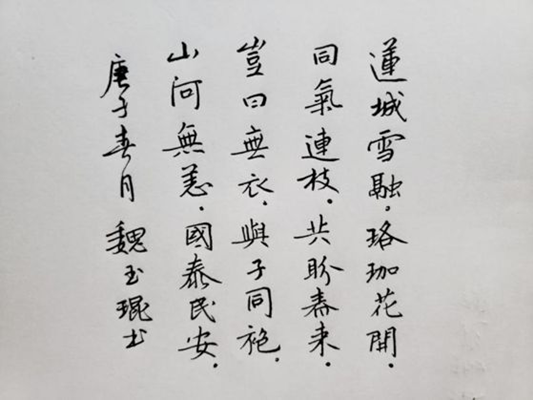 蓮城雪融。珞珈花開。
同氣連枝。共盼春来。
豈曰無衣。與子同袍。
山河無恙。國泰民安。
庚子春月 魏玉琨书